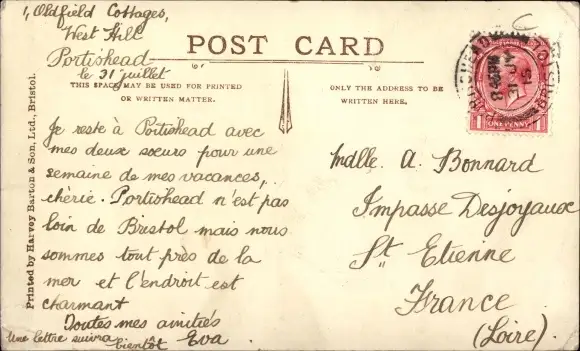 1, Oldfield Cottages,
West Hill
Portishead
le 31 juillet
POST CARD
THIS SPACE MAY BE USED FOR PRINTED
OR WRITTEN MATTER.
ONLY THE ADDRESS TO BE
WRITTEN HERE.
Printed by Harvey Barton & Son, Ltd., Bristol.
Je reste à Portishead avec
mes deux soeurs pour une
semaine de mes vacances,
chèrie. Portishead n'est pas
loin de Bristol mais nous
sommes tout près de la
mer et l'endroit est
charmant
Toutes mes amitiés
Eva
Une lettre suivra
bientôt
Mdlle. A. Bonnard
Impasse Desjoyaux
St. Etienne
France
(Loire).
PORTISHEAD
BRISTOL
8 PM
31 JY
ONE PENNY
1 1